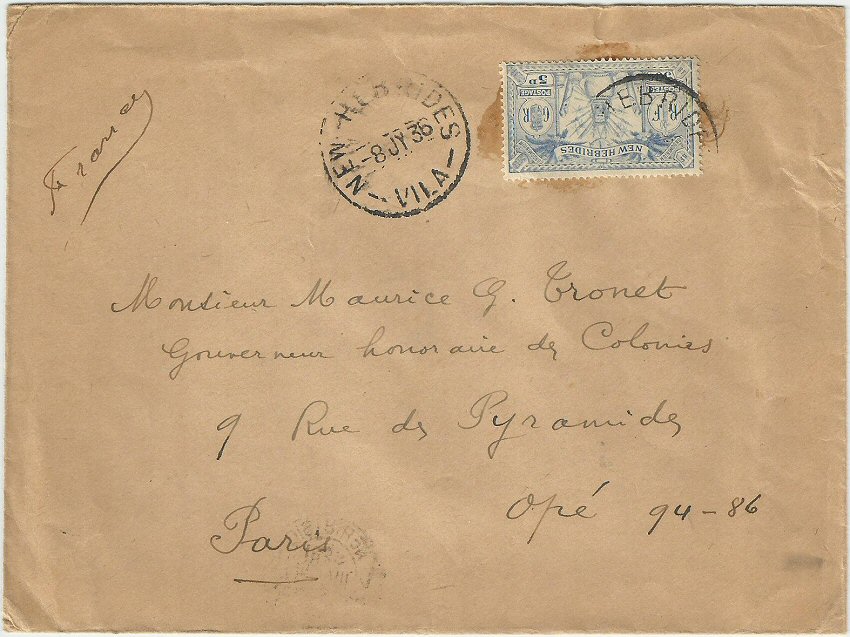 France
NEW HEBRIDES
-8 JY 36
VILA
5D
POSTAGE
POSTES
G R
R F
NEW HEBRIDES
HEBRIDE
Monsieur Maurice G. Tronet
Gouverneur honoraire des Colonies
9 Rue des Pyramides
Opé 94-86
Paris